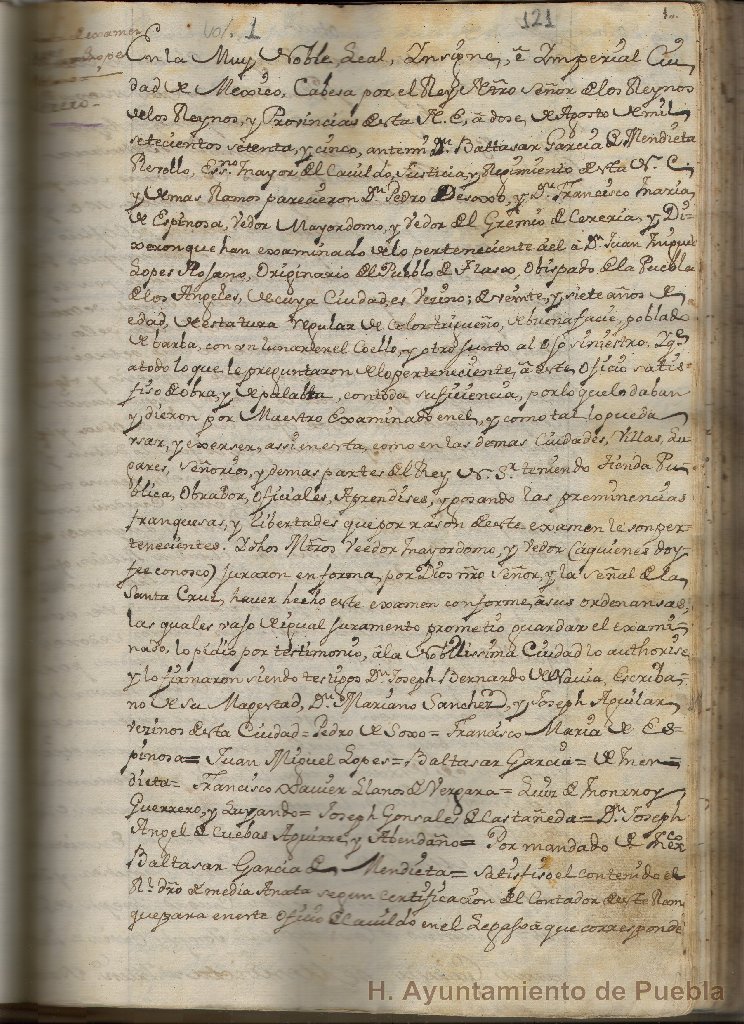 Vol. 1
121
examen
Lopez
En la Muy Noble, Leal, Insigne, é Imperial Ciu
dad de Mexico, Cabesa por el Rey Nrõ Señor de los Reynos
de los Reynos, y Provincias de esta N. E, à dose, de Agosto de mil
setecientos setenta, y cinco, antemi Dn. Baltasar Garcia de Mendieta
Revollo, Essno. mayor del Cavildo, Justicia, y Regimiento de esta N. C.
y demas Ramos parecieron Dn. Pedro de Soxo, y Dn. Francisco Maria
de Espinosa, Vedor Mayordomo, y Vedor del Gremio de Cereria, y Di-
xeron que han examinado de lo perteneciente àel à Dn. Juan Miguel
Lopes Rosano, Originario del Pueblo de Tlasco, Obispado de la Puebla
de los Angeles, de cuya Ciudad, es Vezino; de veinte, y siete años de
edad, de estatura regular de color trigueño, de buena facie, poblado
de barba, con un lunar en el Coello, y otro junto al ojo siniestro. Y q.e
atodo lo que le preguntaron de lo perteneciente, à este Oficio satis-
fiso de obra, y de palabra, con toda suficiencia, por lo que lo daban
y dieron por Maestro Examinado en el, y como tal lo pueda
vsar, y exerser, assi en esta, como en las demas Ciudades, Villas, Lu
gares, Señorios, y demas partes del Rey N. Sr. teniendo tienda Pu
blica, Obrador, Oficiales, Aprendises, y gosando las preminencias
franquesas, y libertades que por rason de este examen le son per-
tenecientes. Y dhos Mrõs Veedor mayordomo, y Vedor (àquienes doy
fee conosco) juraron en forma, por Dios nrõ Señor, y la Señal de la
Santa Cruz, haver hecho este examen conforme, à sus ordenansas,
las quales vajo de igual juramento prometio guardar el exami
nado, lo pidio por testimonio, à la Nobilissima Ciudad lo authorise
y lo firmaron siendo testigos Dn. Joseph Bernardo de Navia, Escriba-
no de su Magestad, Dn. Mariano Sanchez, y Joseph Aguilar
vezinos de esta Ciudad = Pedro de Soxo = Francisco Maria de Es-
pinosa = Juan Miguel Lopes = Baltasar Garcia = de Men=
dieta = Francisco Xavier Llanos de Vergara = Luiz de Monrroy
Guerrero, y Luyando = Joseph Gonsales de Castañeda = Dn. Joseph
Angel de Cuebas Aguirre, y Abendaño = Por mandado de Mexco.
Baltasar Garcia de Mendieta = Satisfiso el contenido el
Rl. dro de media Anata segun certificacion del Contador de este Ram
que para en este Oficio de Cavildo en el Legajo à que corresponde
H. Ayuntamiento de Puebla